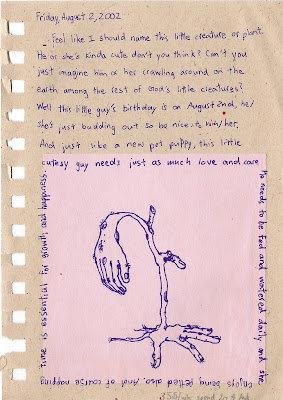 Friday, August 2, 2002
Feel like I should name this little creature or plant.
He or she's kinda cute don't you think? Can't you
just imagine him or her crawling around on the
earth among the rest of God's little creatures?
Well this little guy's birthday is on August 2nd, he/
she's just budding out so be nice to him/her.
And just like a new pet puppy, this little
cutesy guy needs just as much love and care.
He needs to be fed and watered daily and she
enjoys being petted also. And of course napping
time is essential for growth and happiness.